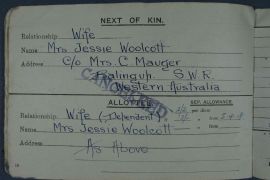 NEXT OF KIN.
Relationship Wife
Name Mrs Jessie Woolcott
Address C/o Mrs. C Mauger
Balingup. S.W.R.
Western Australia
CANCELLED
ALLOTTEE. SEP. ALLOWANCE.
Relationship Wife (Dependent) per diem
Name Mrs Jessie Woolcott from
Address As Above